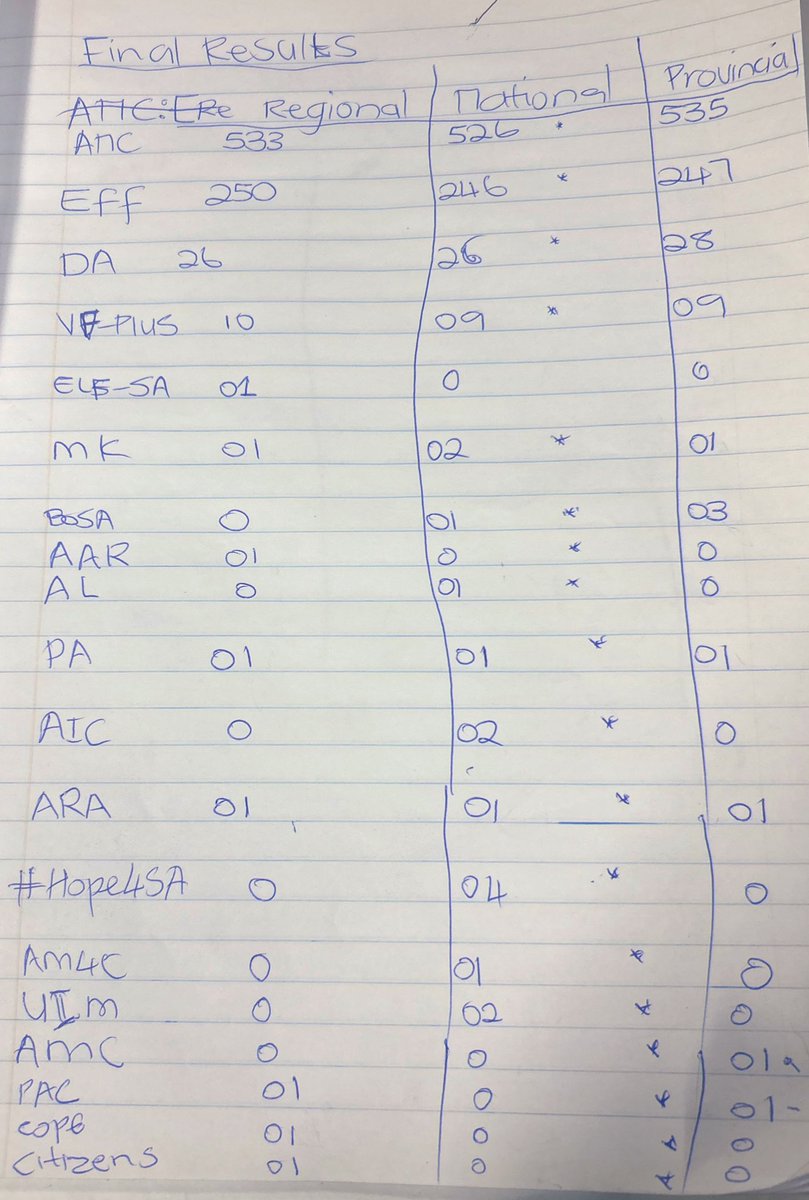 Final Results
Regional | National | Provincial
ANC 533 526 * 535
Eff 250 246 * 247
DA 26 26 * 28
VF-PlUS 10 09 * 09
01 0 0
MK 01 02 * 01
BOSA 0 01 * 03
AAR 01 0 * 0
AL 0 01 * 0
PA 01 01 * 01
AIC 0 02 * 0
ARA 01 01 * 01
#Hope4SA 0 04 * 0
AM4C 0 01 * 0
UIM 0 02 * 0
AMC 0 0 * 01
PAC 01 0 * 01-
COPE 01 0 * 0
Citizens 01 0 * 0